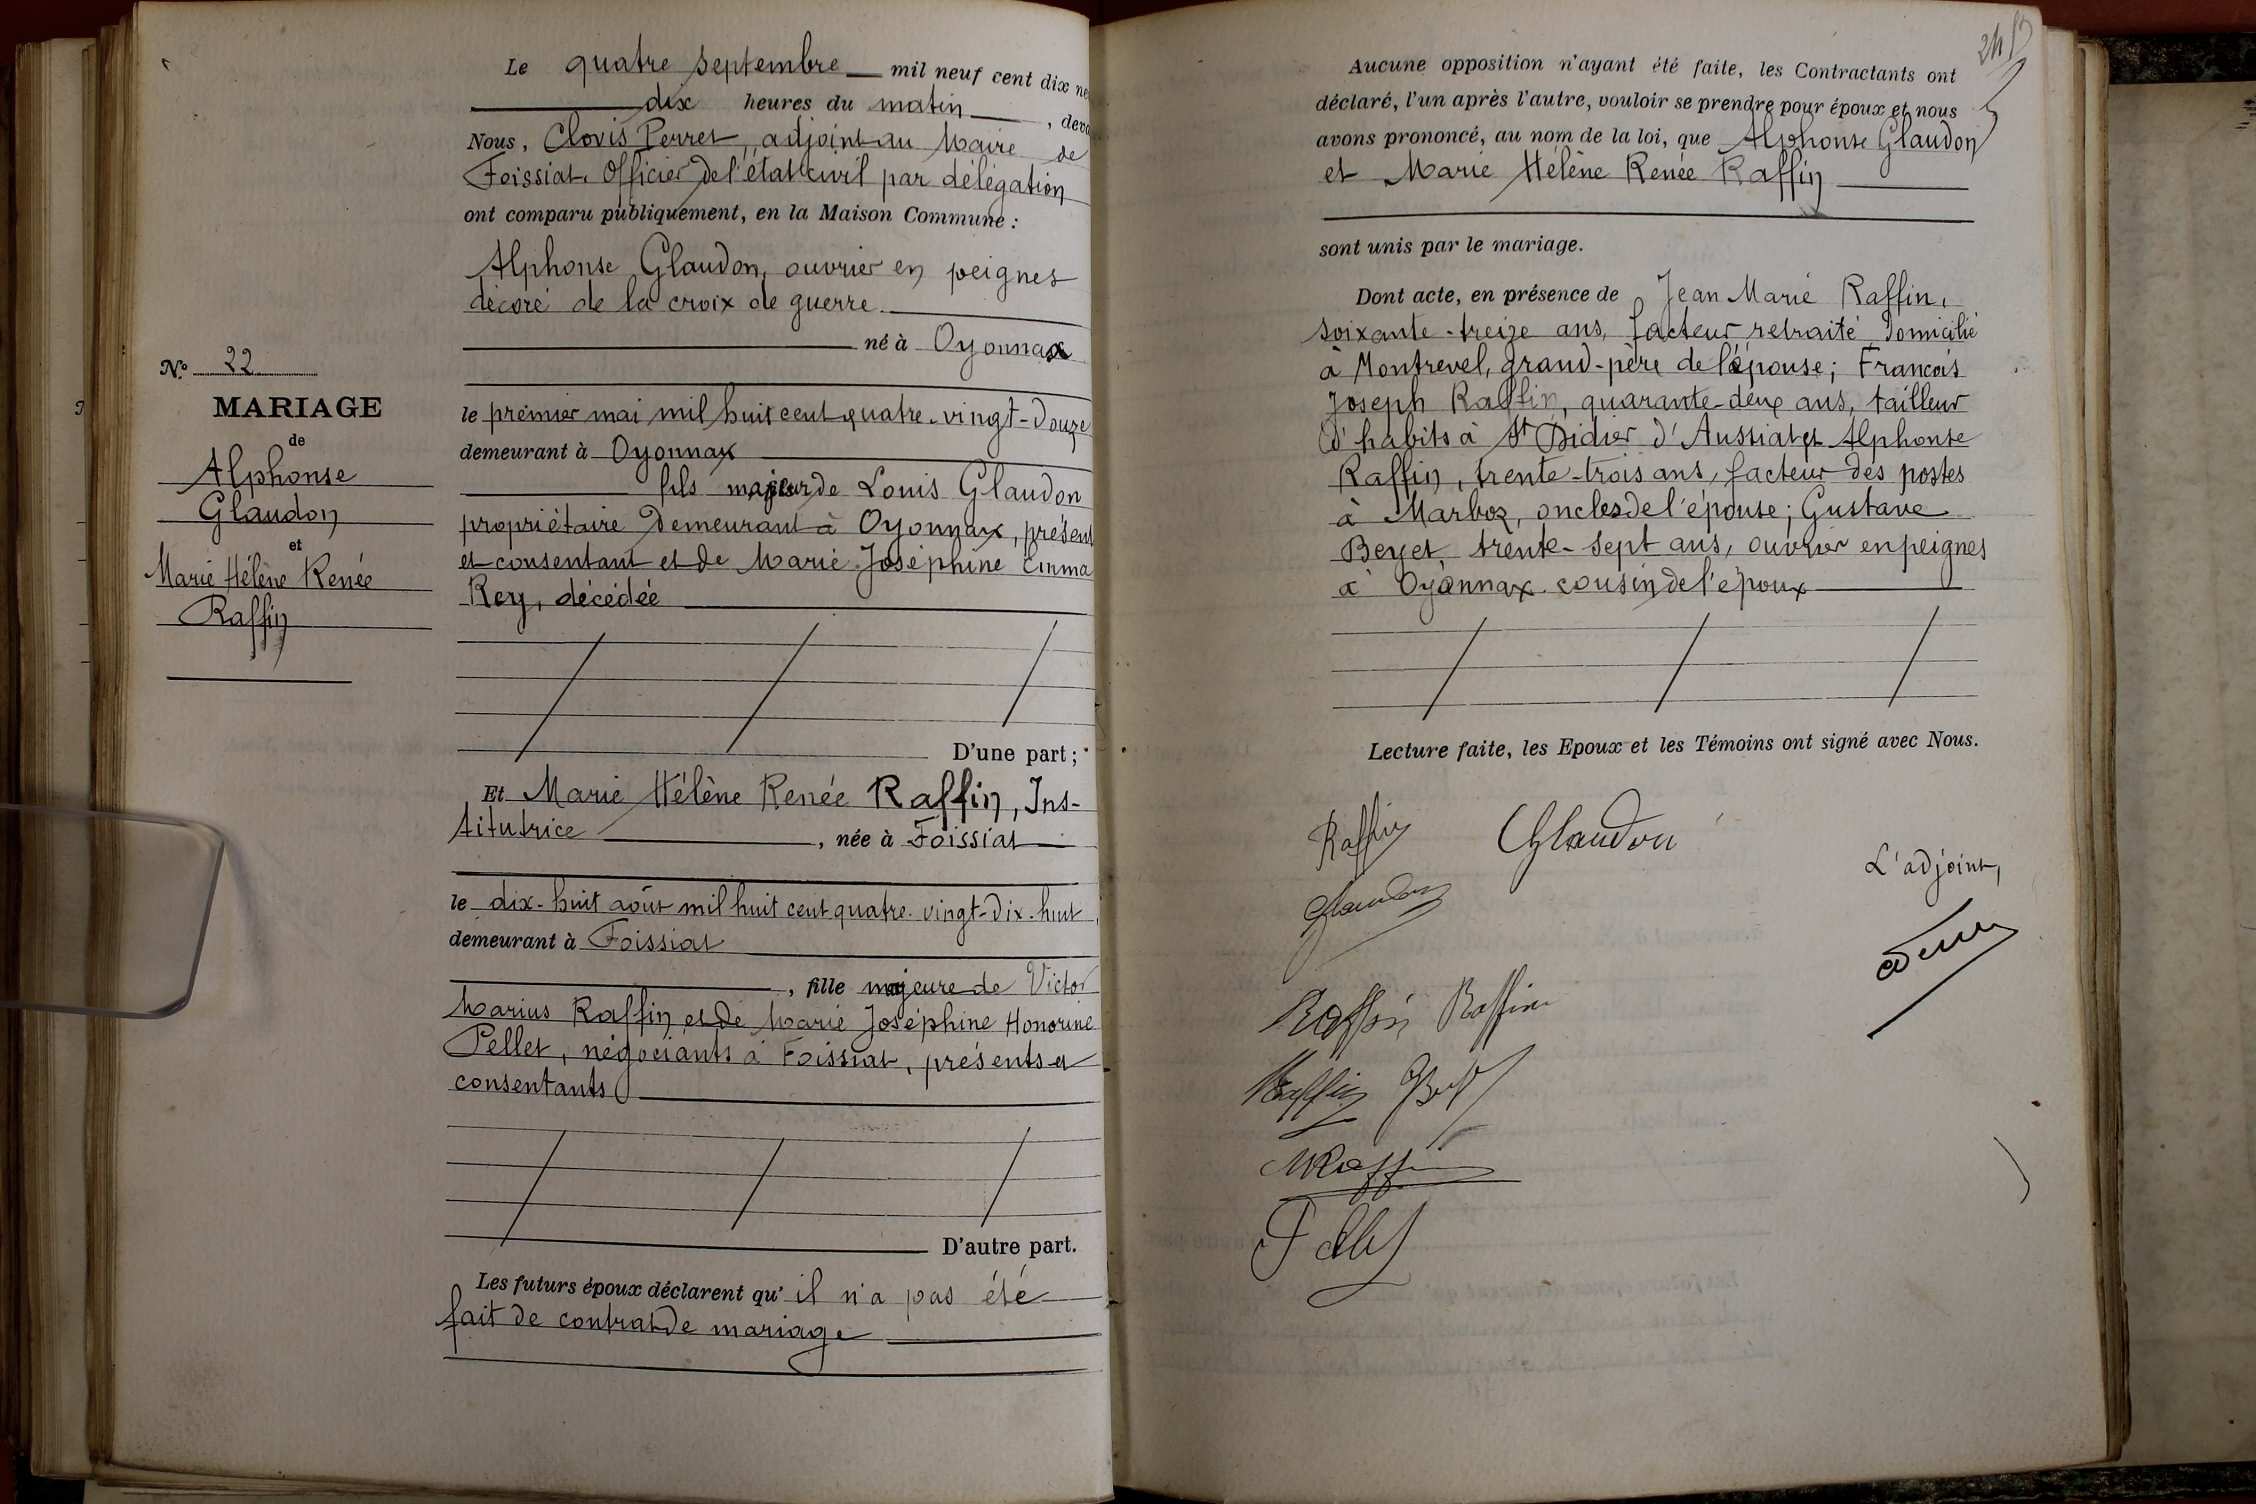 Le quatre septembre mil neuf cent dix ne
dix heures du matin, deva
Nous, Clovis Perret, adjoint au Maire de
Foissiat, Officier de l'état civil par délégation
ont comparu publiquement, en la Maison Commune :
Alphonse Glaudon, ouvrier en peignes
décoré de la croix de guerre.
né à Oyonnax
le premier mai mil huit cent quatre-vingt-douze
demeurant à Oyonnax
fils majeur de Louis Glaudon
propriétaire demeurant à Oyonnax, présent
et consentant et de Marie Joséphine Emma
Rey, décédée
D'une part ;
Et Marie Hélène Renée Raffin, Ins-
titutrice, née à Foissiat
le dix-huit août mil huit cent quatre-vingt-dix-huit,
demeurant à Foissiat
, fille majeure de Victor
Marius Raffin et de Marie Joséphine Honorine
Pellet, négociants à Foissiat, présents et
consentants
D'autre part.
Les futurs époux déclarent qu'il n'a pas été
fait de contrat de mariage
N° 22
MARIAGE
de
Alphonse
Glaudon
et
Marie Hélène Renée
Raffin
Aucune opposition n'ayant été faite, les Contractants ont
déclaré, l'un après l'autre, vouloir se prendre pour époux et nous
avons prononcé, au nom de la loi, que Alphonse Glaudon
et Marie Hélène Renée Raffin
sont unis par le mariage.
Dont acte, en présence de Jean Marie Raffin,
soixante-treize ans, facteur retraité domicilié
à Montrevel, grand-père de l'épouse; Francois
Joseph Raffin, quarante-deux ans, tailleur
d'habits à St Didier d'Aussiat et Alphonse
Raffin, trente-trois ans, facteur des postes
à Marboz, oncles de l'épouse; Gustave
Beyet trente-sept ans, ouvrier en peignes
à Oyonnax cousin de l'époux
Lecture faite, les Epoux et les Témoins ont signé avec Nous.
Raffin Glaudon
L'adjoint,
Glaudon
Raffin Raffin
Raffin
MRaffin